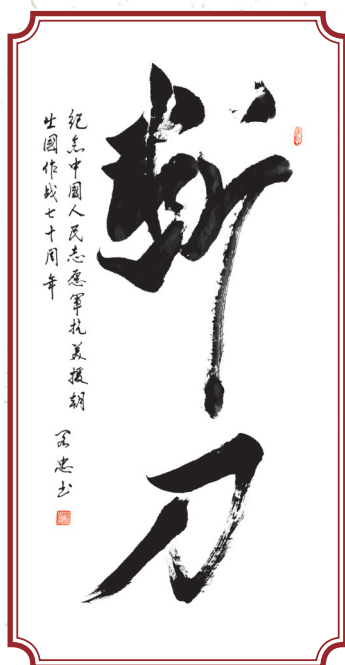 断刀
纪念中國人民志愿軍抗美援朝
出國作战七十周年
忠书